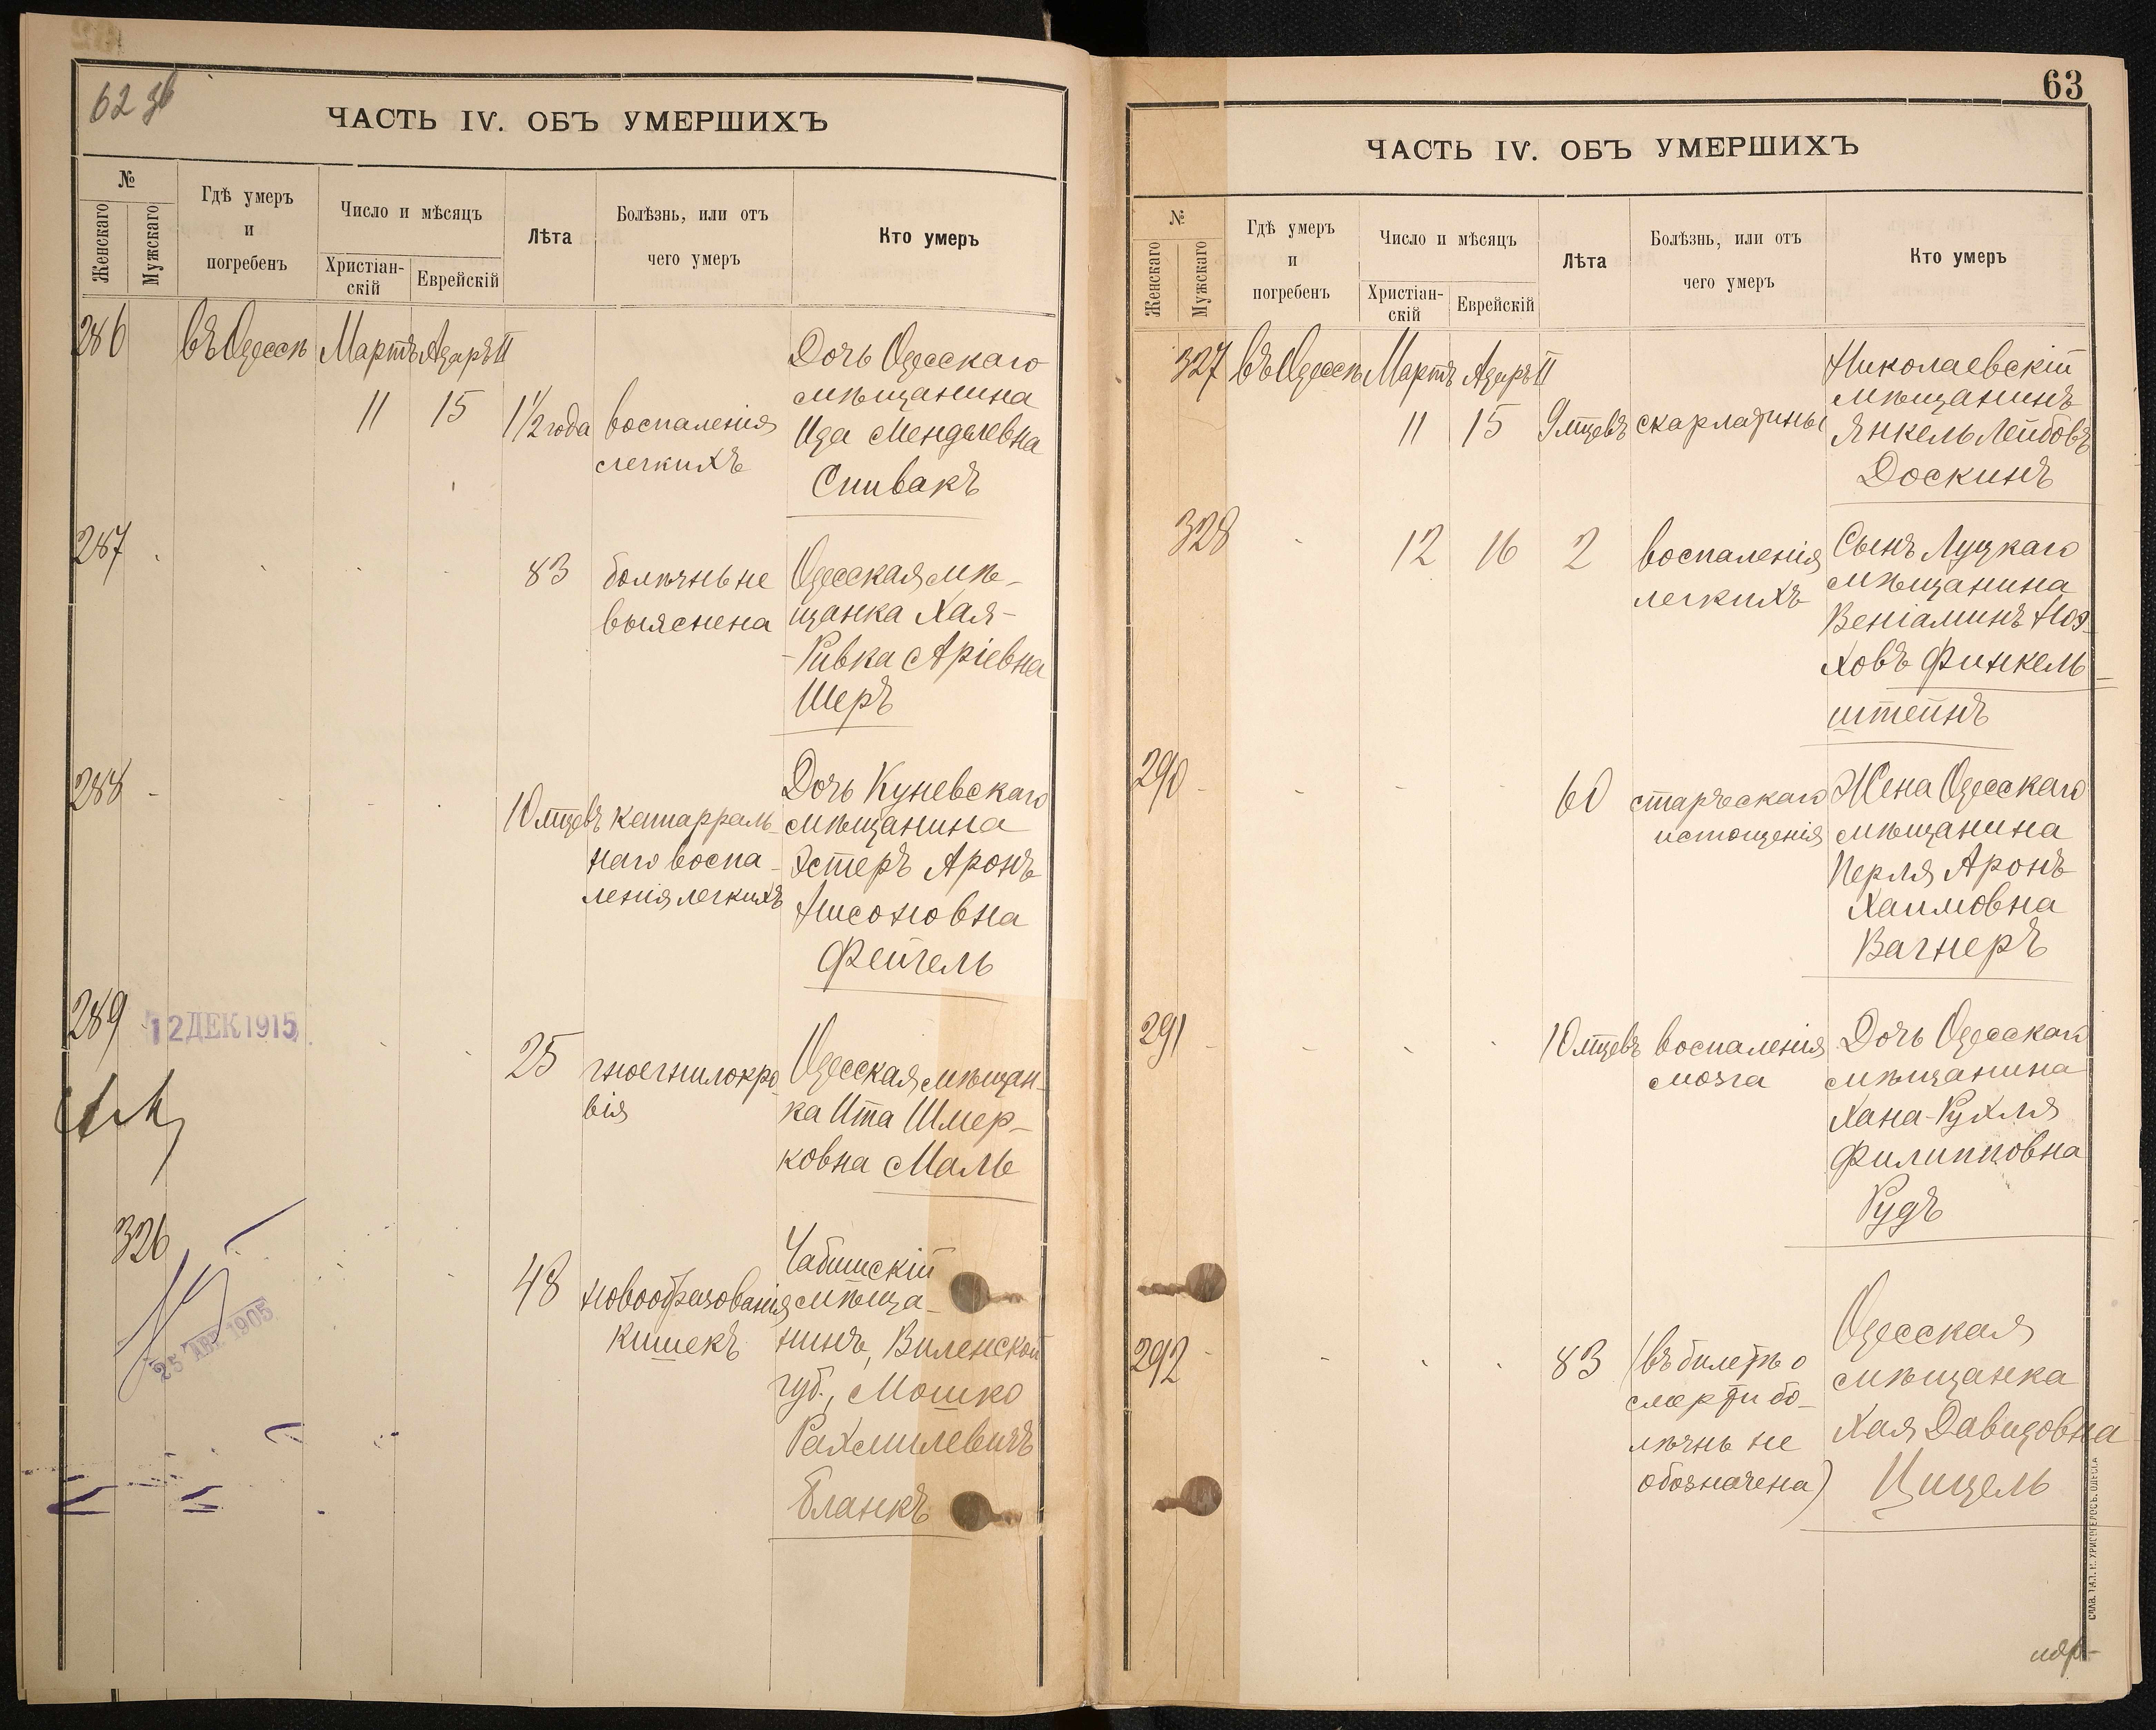 62 зв
ЧАСТЬ IV. ОБЪ УМЕРШИХЪ
№
Женскаго
Мужскаго
Гдѣ умеръ
и
погребенъ
Число и мѣсяцъ
Христіан-
скій
Еврейскій
Лѣта
Болѣзнь, или отъ
чего умеръ
Кто умеръ
286 въ Одессѣ Мартъ Адаръ II
11 15 1 1/2 года
воспаленія
легкихъ
Дочь Одесскаго
мѣщанина
Ида Менделевна
Спивакъ
287
83
болѣзнь не
выяснена
Одесская мѣ-
щанка Хая-
-Ривка Аріевна
Шеръ
288
10 мцевъ
катарраль-
наго воспа-
ленія легкихъ
Дочь Куневскаго
мѣщанина
Эстеръ Аронъ
Нисоновна
Фейгель
289
12 ДЕК 1915
25
гноегнилокро-
вія
Одесская мѣщан-
ка Ита Шмер-
ковна Маль
326
25 АВГ 1905
48
новообразованія
кишекъ
мѣща-
нинъ, Виленской
губ., Мошко
Рахмилевичъ
Бланкъ
63
ЧАСТЬ IV. ОБЪ УМЕРШИХЪ
№
Женскаго
Мужскаго
Гдѣ умеръ
и
погребенъ
Число и мѣсяцъ
Христіан-
скій
Еврейскій
Лѣта
Болѣзнь, или отъ
чего умеръ
Кто умеръ
327 въ Одессѣ Мартъ Адаръ II
11 15 9 мцевъ
скарлатины
Николаевскій
мѣщанинъ
Янкель Лейбовъ
Доскинъ
328
12 16 2
воспаленія
легкихъ
Сынъ Луцкаго
мѣщанина
Веніаминъ Ноэ-
ховъ Финкель-
штейнъ
290
60
старческаго
истощенія
Жена Одесскаго
мѣщанина
Перля Аронъ
Хаимовна
Вагнеръ
291
10 мцевъ
воспаленія
мозга
Дочь Одесскаго
мѣщанина
Хана-Рухля
Филипповна
Рудъ
292
83
(въ билетѣ о
смерти бо-
лѣзнь не
обозначена)
Одесская
мѣщанка
Хая Давидовна
Цицель